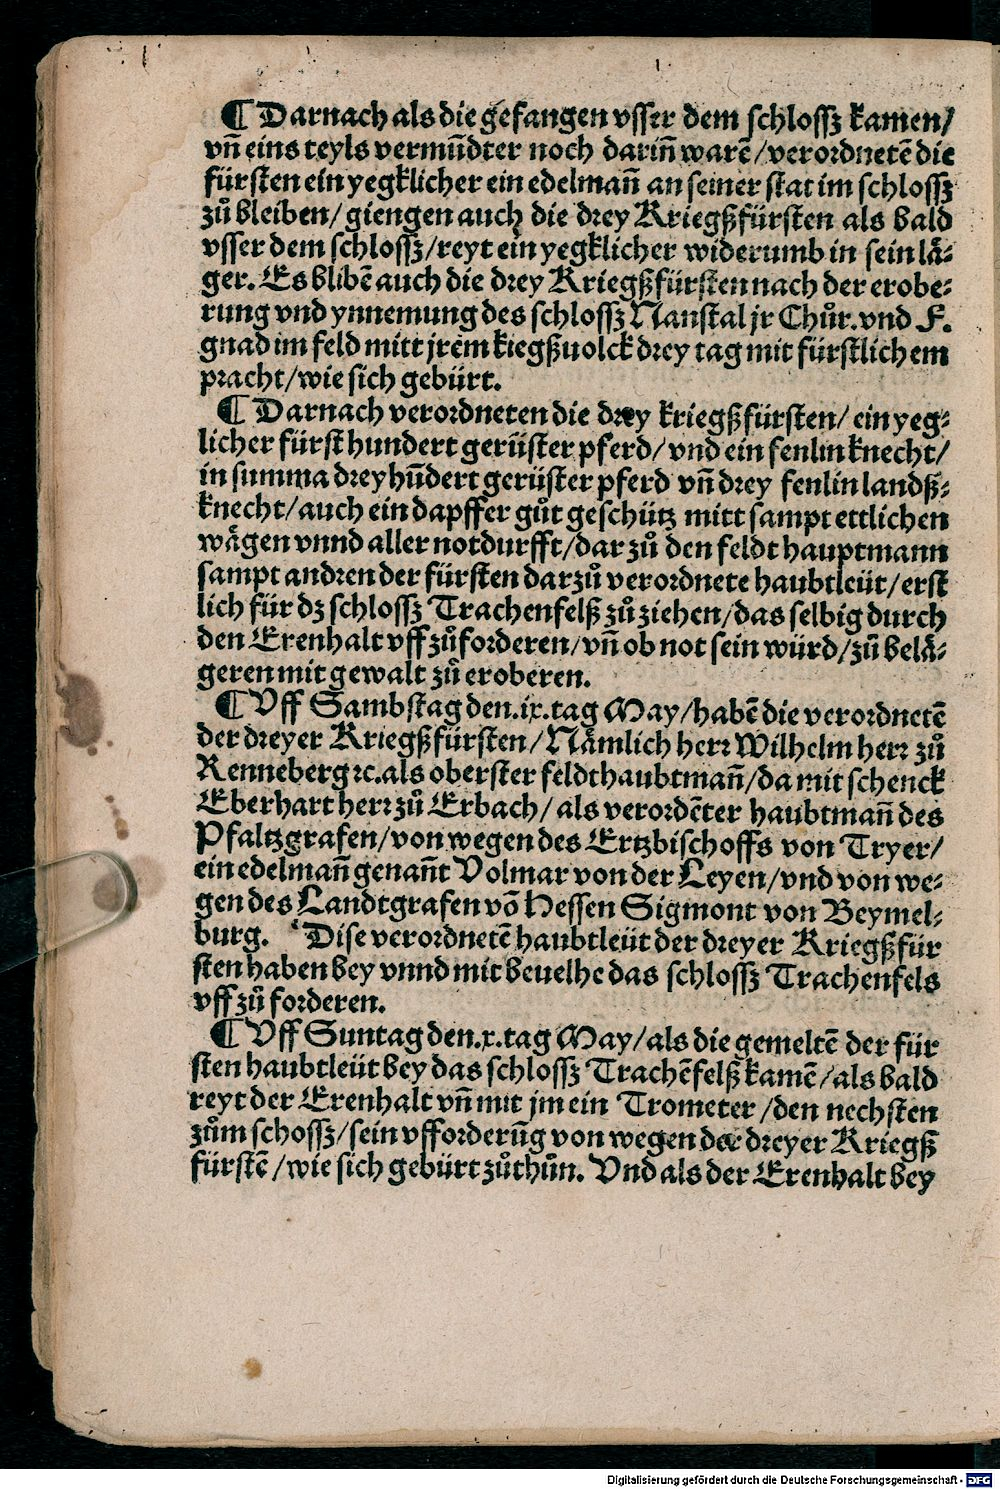 ¶ Darnach als die gefangen vsser dem schlossz kamen/
vn̄ eins teyls vermūdter noch darin̄ warē/verordnetē die
fürsten ein yegklicher ein edelman̄ an seiner stat im schlossz
zů bleiben/ giengen auch die drey Kriegßfürsten als bald
vsser dem schlossz/reyt ein yegklicher widerumb in sein lä⸗
ger. Es blibē auch die drey Kriegßfürsten nach der erobe⸗
rung vnd ynnemung des schlossz Nanstal jr Chůr. vnd F.
gnad im feld mitt jrem kiegßuolck drey tag mit fürstlichem
pracht/wie sich gebürt.
¶ Darnach verordneten die drey kriegßfürsten/ ein yeg⸗
licher fürst hundert gerüster pferd/ vnd ein fenlin knecht/
in summa drey hūdert gerüster pferd vn̄ drey fenlin landß⸗
knecht/auch ein dapffer gůt geschütz mitt sampt ettlichen
wägen vnnd aller notdurfft/dar zů den feldt hauptmann
sampt andren der fürsten darzů verordnete haubtleüt/erst
lich für dz schlossz Trachenfelß zů ziehen/das selbig durch
den Erenhalt vff zůforderen/vn̄ ob not sein würd/zů belä⸗
geren mit gewalt zů eroberen.
¶ Vff Sambstag den.ix.tag May/habē die verordnetē
der dreyer Kriegßfürsten/Nämlich herr Wilhelm herr zů
Renneberg ⁊c. als oberster feldthaubtman̄/da mit schenck
Eberhart herr zů Erbach/ als verordēter haubtman̄ des
Pfaltzgrafen/von wegen des Ertzbischoffs von Tryer/
ein edelman̄ genan̄t Volmar von der Leyen/vnd von we⸗
gen des Landtgrafen vō Hessen Sigmont von Beymel⸗
burg. Dise verordnetē haubtleüt der dreyer Kriegßfür
sten haben bey vnnd mit beuelhe das schlossz Trachenfels
vff zů forderen.
¶ Vff Suntag den.x.tag May/als die gemeltē der für
sten haubtleüt bey das schlossz Trachēfelß kamē/als bald
reyt der Erenhalt vn̄ mit jm ein Trometer/den nechsten
zům schossz/sein vfforderūg von wegen der dreyer Kriegß
fürstē/wie sich gebürt zůthůn. Vnd als der Erenhalt bey
Digitalisierung gefördert durch die Deutsche Forschungsgemeinschaft - DFG